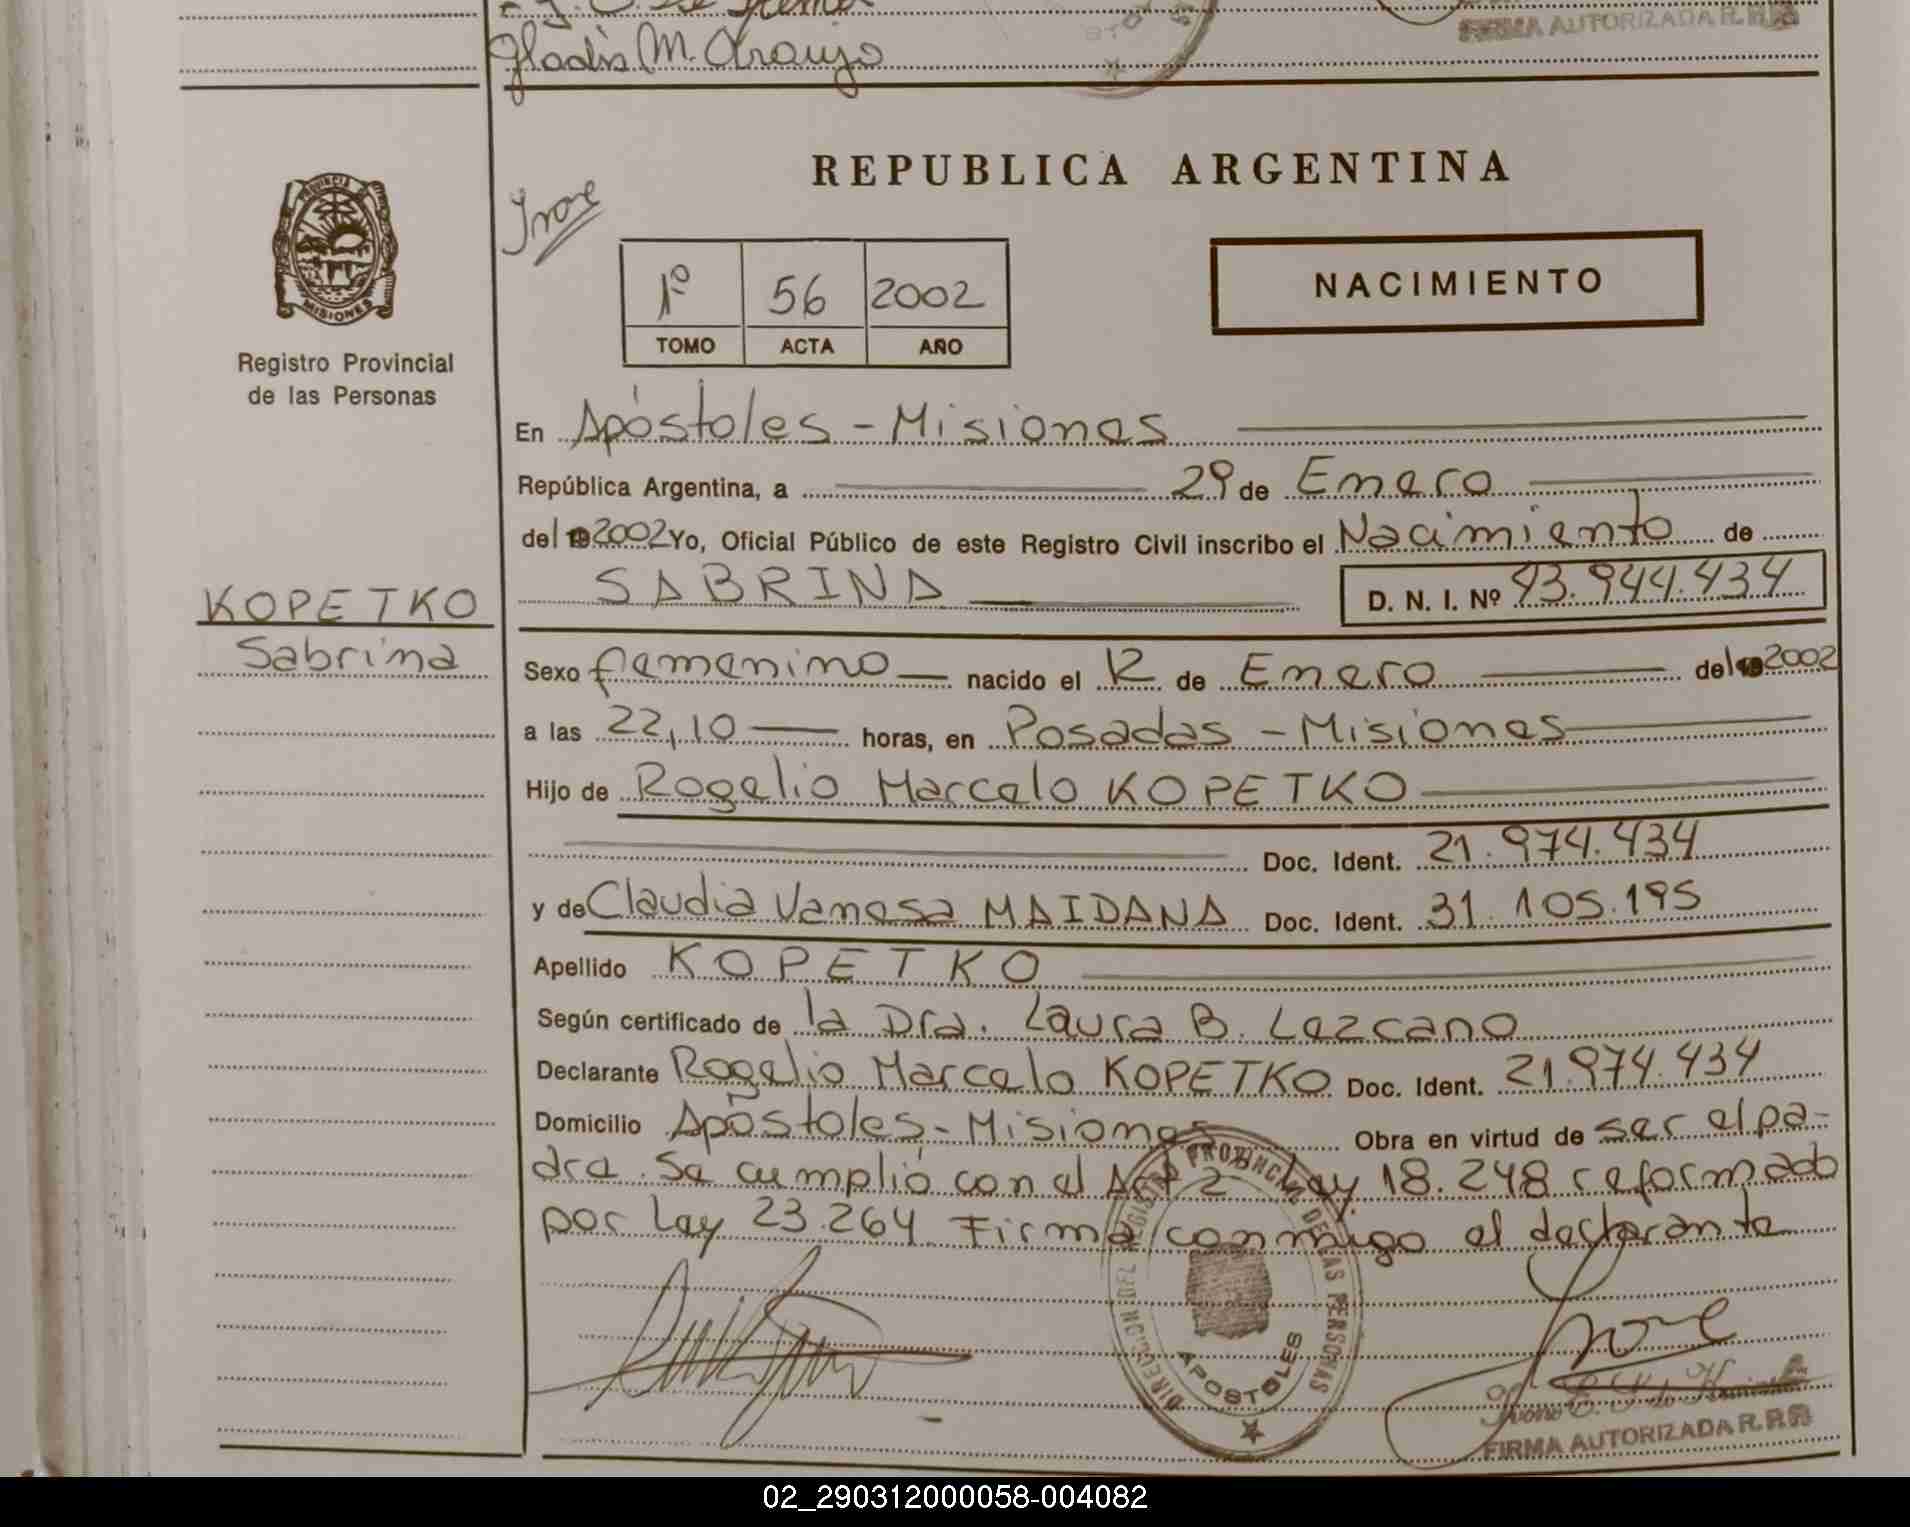 Gladis M. Araujo
FIRMA AUTORIZADA R.P.P.
PROVINCIA DE
MISIONES
Registro Provincial
de las Personas
REPUBLICA ARGENTINA
Ivone
1º 56 2002
TOMO ACTA AÑO
NACIMIENTO
En Apóstoles - Misiones
República Argentina, a 29 de Enero
del 2002 Yo, Oficial Público de este Registro Civil inscribo el Nacimiento de
SABRINA D. N. I. Nº 43.944.434
KOPETKO
Sabrina
Sexo femenino nacido el 12 de Enero del 2002
a las 22,10 horas, en Posadas - Misiones
Hijo de Rogelio Marcelo KOPETKO
Doc. Ident. 21.974.434
y de Claudia Vanesa MAIDANA Doc. Ident. 31.105.195
Apellido KOPETKO
Según certificado de la Dra. Laura B. Lezcano
Declarante Rogelio Marcelo KOPETKO Doc. Ident. 21.974.434
Domicilio Apóstoles - Misiones Obra en virtud de ser el pa-
dre. Se cumplió con el Art 2 Ley. 18.248 reformado
por Ley 23.264 Firma conmigo el declarante
DIRECCION DEL REGISTRO PROVINCIAL DE LAS PERSONAS
APOSTOLES
FIRMA AUTORIZADA R.P.P.
02_290312000058-004082